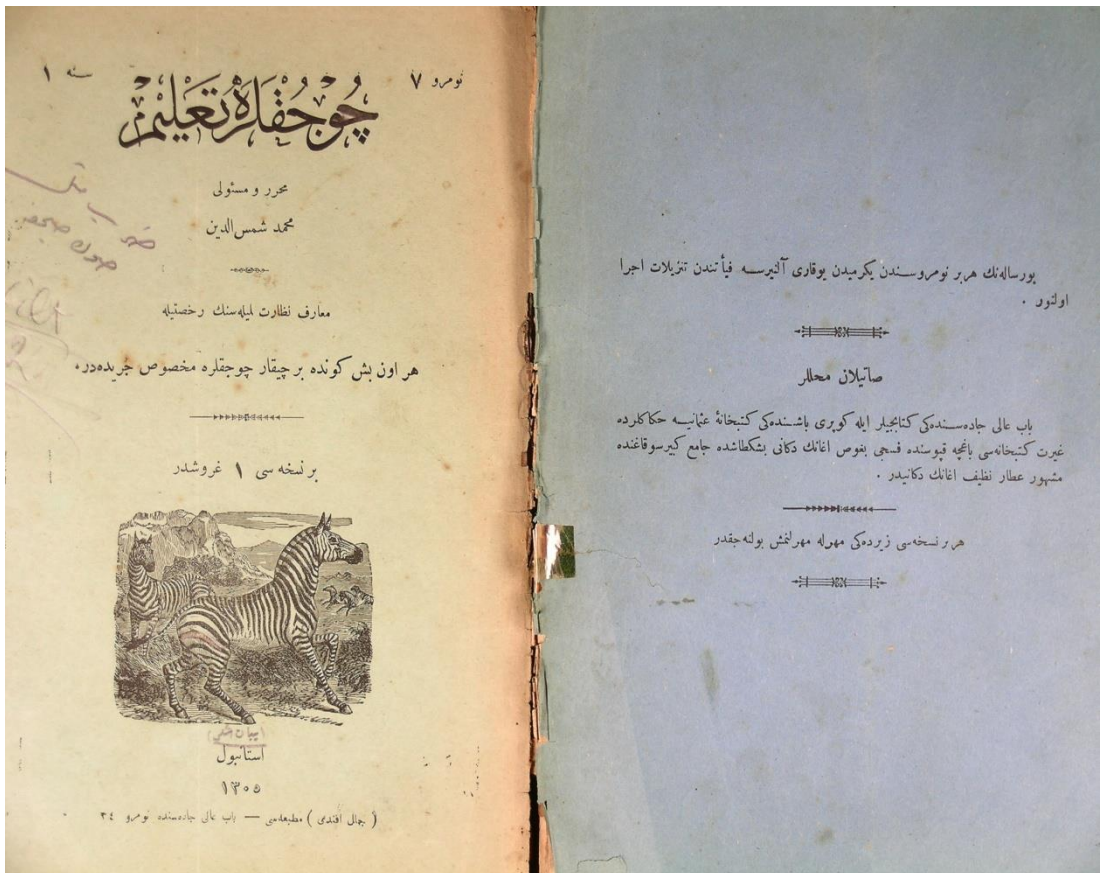 نومرو ٧
سنه ١
چوجقلره تعليم
محرر و مسئولى
محمد شمس‌الدين
معارف نظارت جليله‌سنك رخصتيله
هر اون بش كونده بر چيقار چوجقلره مخصوص جريده‌در.
بر نسخه سى ١ غروشدر
استانبول
١٣٠٥
( جمال افندى ) مطبعه‌سى — باب عالى جاده‌سنده نومرو ٣٤
بو رساله‌نك هر بر نومروسندن يكرميدن يوقارى آلنيرسه فيأتندن تنزيلات اجرا
اولنور .
صاتيلان محللر
باب عالى جاده‌سنده‌كى كتابجيلر ايله كوپرى باشنده‌كى كتبخانهٔ عثمانيه حكاكلرده
غيرت كتبخانه‌سى باغچه قپوسنده قسمجى بغوص اغانك دكانى بشكطاشده جامع كبير سوقاغنده
مشهور عطار نظيف اغانك دكانيدر .
هر بر نسخه‌سى زيرده‌كى مهرله مهرلنمش بولنه‌جقدر